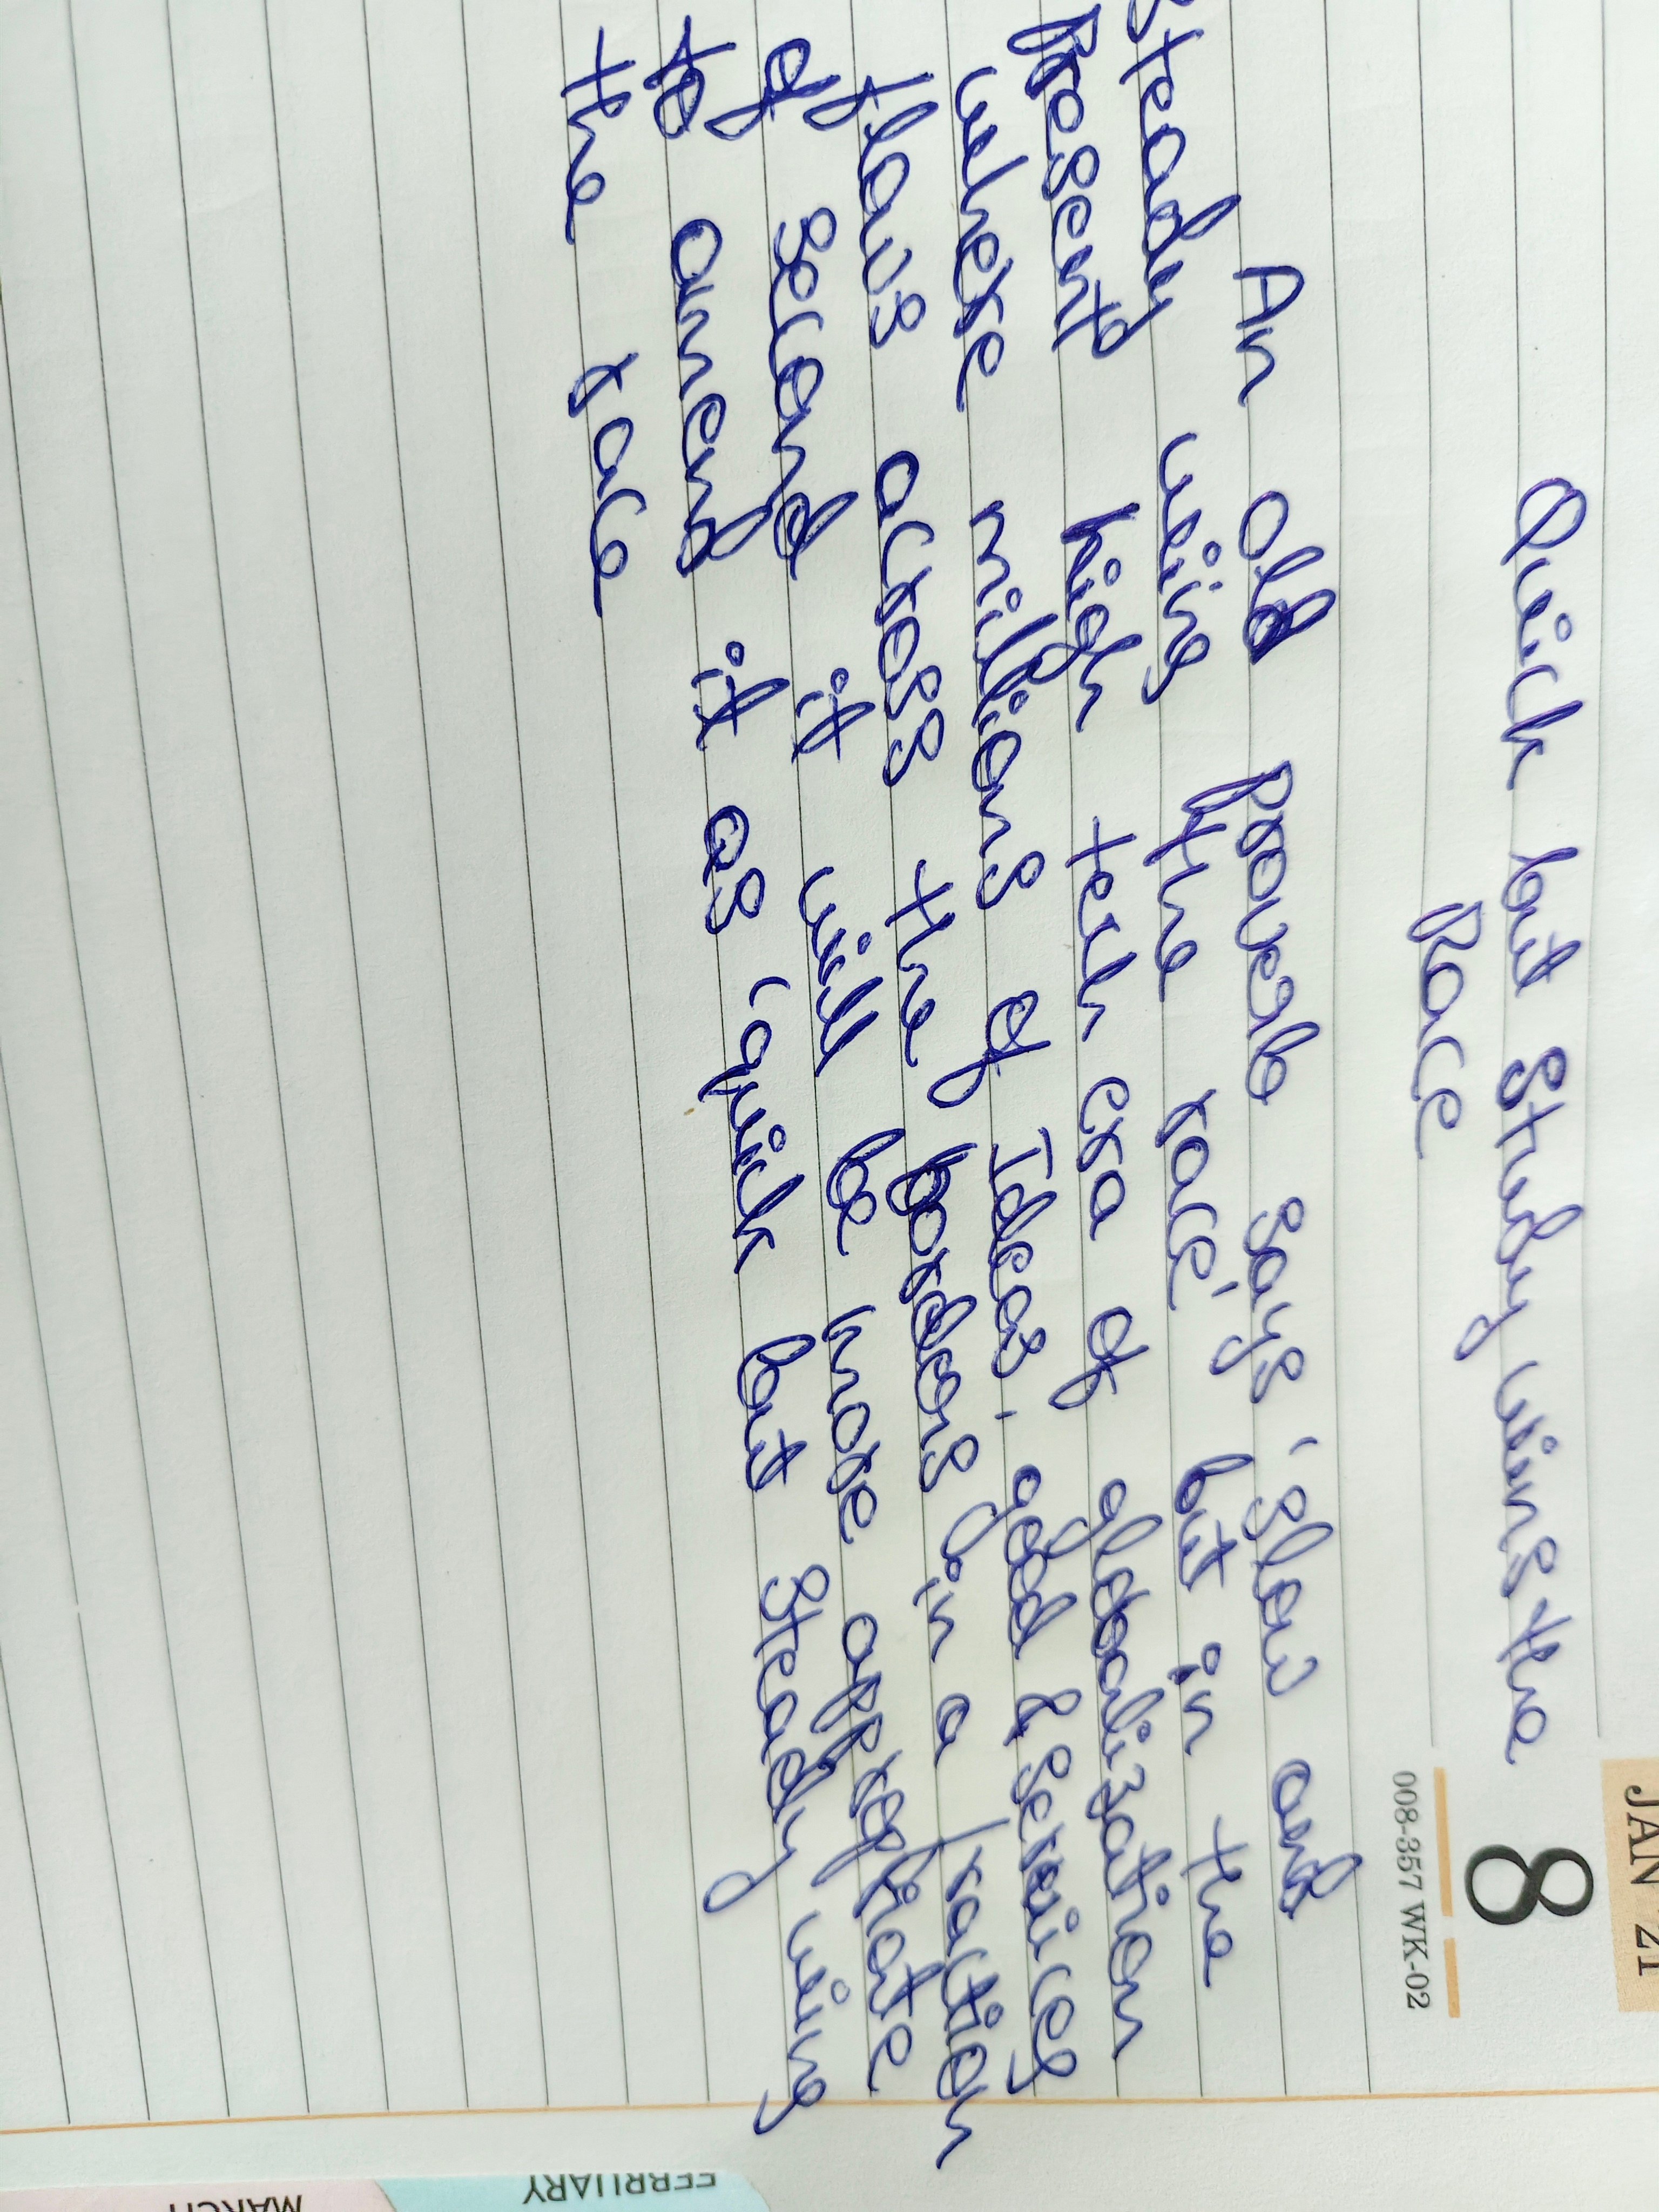 JAN '21
8
008-357 WK-02
Quick but Study wins the
Race
An old proverb says 'slow and
steady wins the race', but in the
present high tech era of globalization
where millions of Ideas, good & services
flows across the borders in a fraction
of second it will be more appropriate
to amend it as 'quick but steady wins
the race
FEBRUARY
MARCH